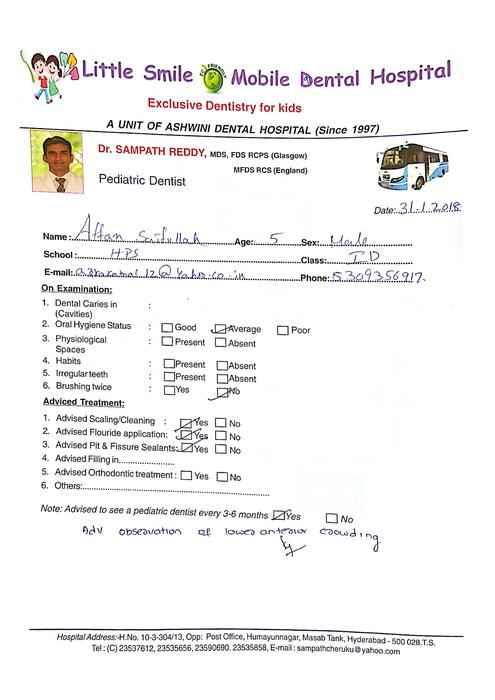 Little Smile ECO FRIENDLY Mobile Dental Hospital
Exclusive Dentistry for kids
A UNIT OF ASHWINI DENTAL HOSPITAL (Since 1997)
Dr. SAMPATH REDDY, MDS, FDS RCPS (Glasgow)
MFDS RCS (England)
Pediatric Dentist
Date: 31.1.2018
Name: Affan Saifullah Age: 5 Sex: Male
School: HPS Class: I D
E-mail: @Yahoo.co.in Phone: 5309356917.
On Examination:
1. Dental Caries in :
(Cavities)
2. Oral Hygiene Status : Good Average Poor
3. Physiological : Present Absent
Spaces
4. Habits : Present Absent
5. Irregular teeth : Present Absent
6. Brushing twice : Yes No
Adviced Treatment:
1. Advised Scaling/Cleaning : Yes No
2. Advised Flouride application: Yes No
3. Advised Pit & Fissure Sealants: Yes No
4. Advised Filling in....................
5. Advised Orthodontic treatment : Yes No
6. Others:..................................................................
Note: Advised to see a pediatric dentist every 3-6 months Yes No
Adv observation of lower anterior crowding
Hospital Address:-H.No. 10-3-304/13, Opp: Post Office, Humayunnagar, Masab Tank, Hyderabad - 500 028.T.S.
Tel : (C) 23537612, 23535656, 23590690. 23535858, E-mail : sampathcheruku@yahoo.com